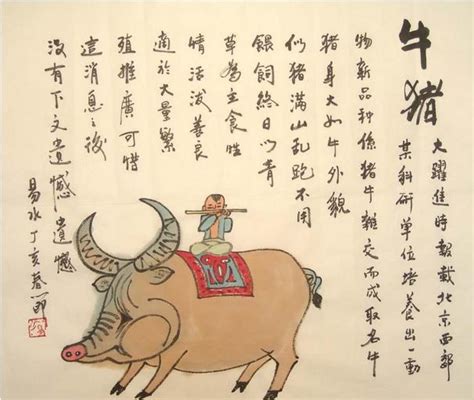 牛猪
大躍進時報載北京西部
某科研單位培養出一動
物新品种係猪牛雜交而成取名牛
猪身大如牛外貌
似猪滿山乱跑不用
餵飼終日以青
草為主食性
情活潑善良
適於大量繁
殖推廣可惜
這消息之後
没有下文遺憾遺憾
易水丁亥